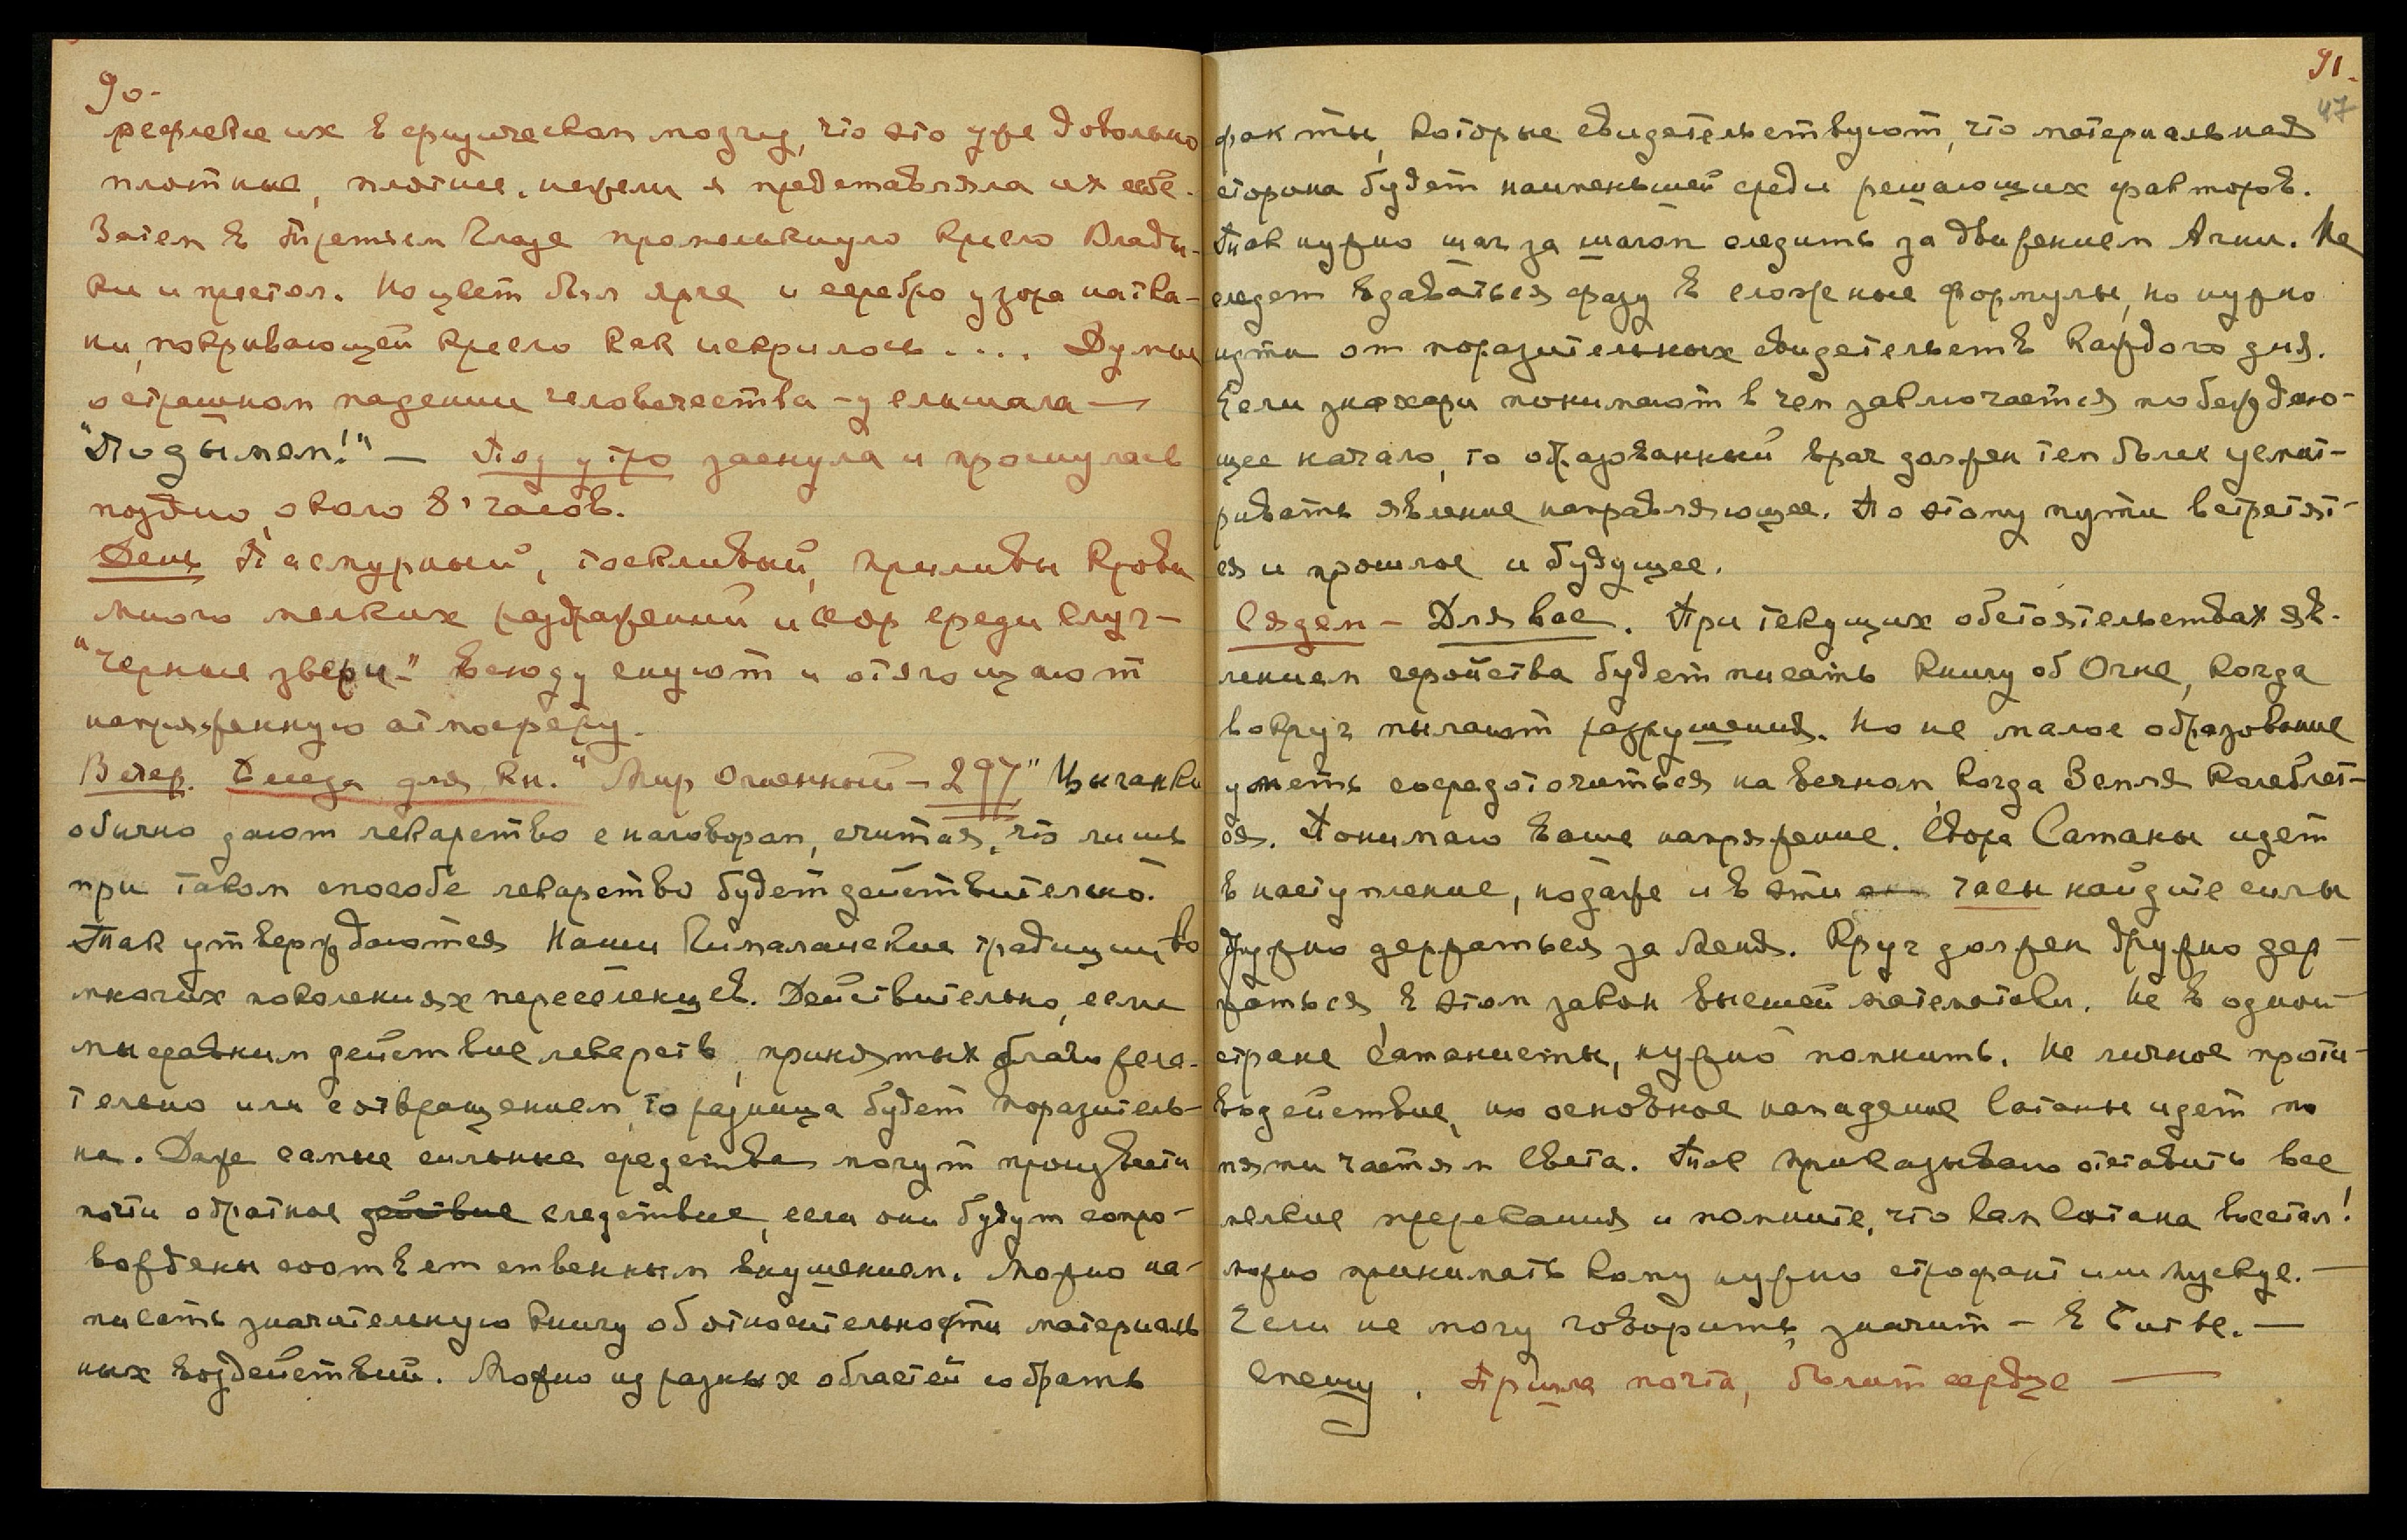 90.
рефлексе их в физическом мозгу, что это уже довольно
плотные, плотнее, нежели я представляла их себе.
Затем в Третьем Глазе промелькнуло кресло Влады-
ки и престол. Но цвет был ярче и серебро узора на тка-
ни, покрывающей кресло как искрилось.... Думы
о страшном падении человечества - услышала —
"Подымем!" — Под утро заснула и проснулась
поздно, около 8' часов.
День Пасмурный, тоскливый, приливы крови
много мелких раздражений и ссор среди слуг -
"Черные звери" - всюду снуют и отягощают
напряженную атмосферу.
Вечер. Беседа для кн. "Мир Огненный - 297" Цыганки
обычно дают лекарство с наговором, считая, что лишь
при таком способе лекарство будет действительно.
Так утверждаются Наши Гималайские традиции, во
многих поколениях переселенцев. Действительно, если
мы сравним действие лекарств, принятых благожела-
тельно или с отвращением, то разница будет поразитель-
на. Даже самые сильные средства могут произвести
почти обратное действие следствие, если они будут сопро-
вождены соответственным внушением. Можно на-
писать значительную книгу об относительности материаль
ных воздействий. Можно из разных областей собрать
91.
47
факты, которые свидетельствуют, что материальная
сторона будет наименьшей среди решающих факторов.
Так нужно шаг за шагом следить за движением Агни. Не
следует вдаваться сразу в сложные формулы, но нужно
идти от поразительных свидетельств каждого дня.
Если знахари понимают в чем заключается побеждаю-
щее начало, то образованный врач должен тем более усмат-
ривать явление направляющее. По этому пути встретят-
ся и прошлое и будущее.
Сядем - Для вас. При текущих обстоятельствах яв-
лением геройства будет писать книгу об Огне, когда
вокруг пылают разрушения. Но не малое образование
уметь сосредоточиться на вечном, когда Земля колеблет-
ся. Понимаю ваше напряжение. Свора Сатаны идет
в наступление, но даже и в эти часы найдите силы
дружно держаться за Меня. Круг должен дружно дер-
жаться, в этом закон высшей математики. Не в одной
стране сатанисты, нужно помнить. Не личное проти-
водействие, но основное нападение Сатаны идет по
пяти частям Света. Так приказываю отставить все
мелкие пререкания и помните, что сам Сатана восстал!
Можно принимать кому нужно строфант или мускус. —
Если не могу говорить, значит - в Битве. —
Спешу. Пришла почта, болит сердце —